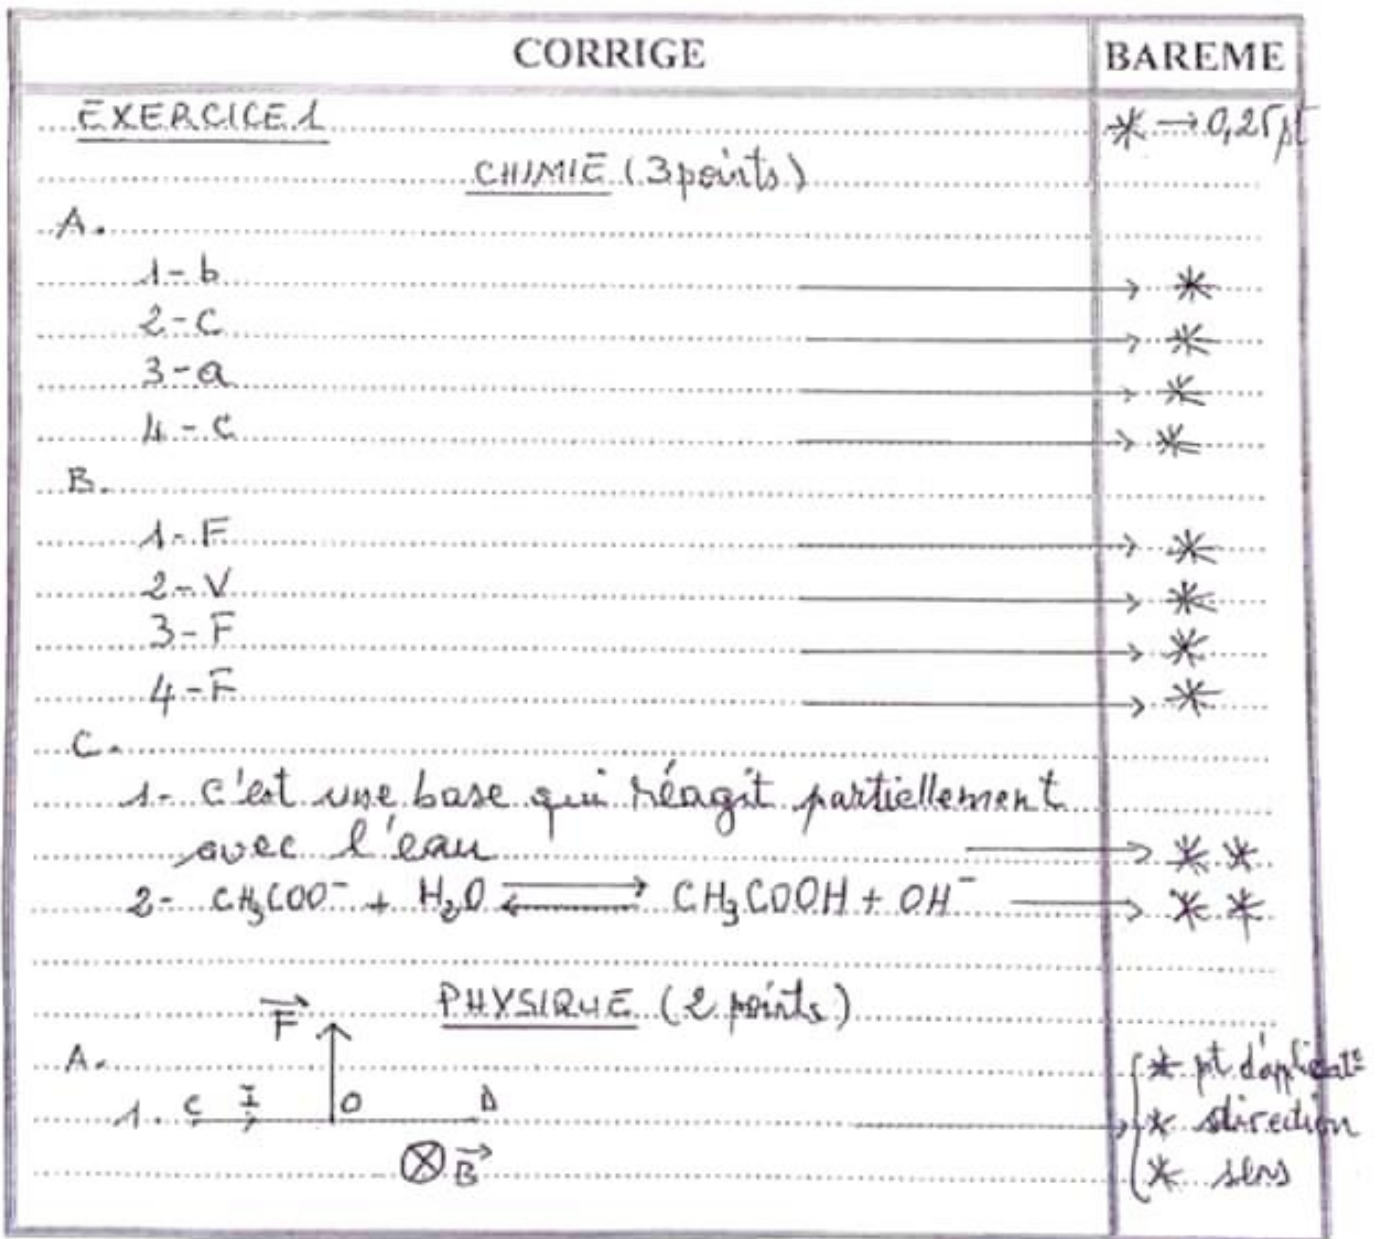 CORRIGE BAREME
EXERCICE 1 * → 0,25 pt
CHIMIE (3 points)
A.
1- b → *
2- C → *
3- a → *
4- C → *
B.
1- F → *
2- V → *
3- F → *
4- F → *
C.
1- C'est une base qui réagit partiellement
avec l'eau → * *
2- CH₃COO⁻ + H₂O ⇌ CH₃COOH + OH⁻ → * *
PHYSIQUE (2 points)
F
A. * pt d'applicat°
1. C I O D → * direction
B * sens